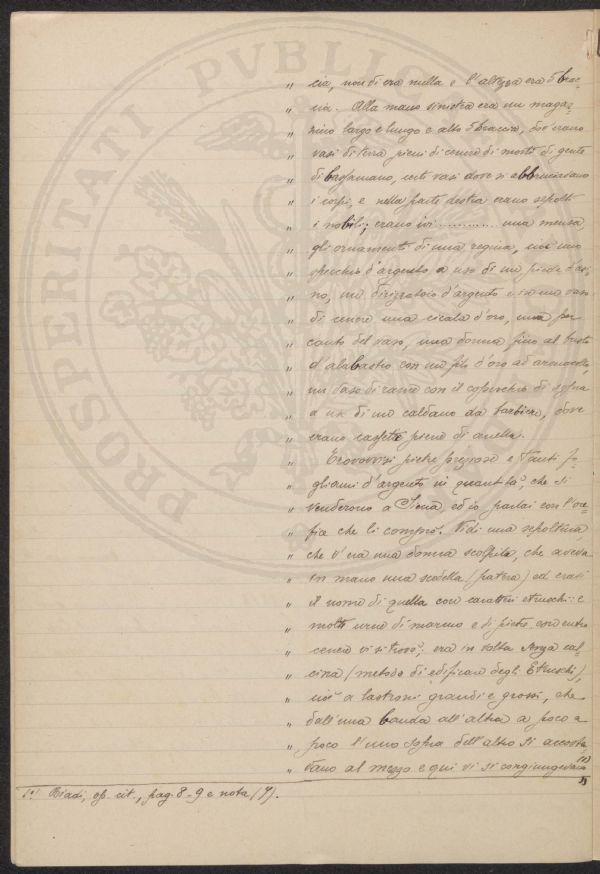 PROSPERITATI PVBLICAE
" cia, non di era nulla e l'altezza era 5 brac-
" cia. Alla mano sinistra era un magaz-
" zino largo e lungo e alto 5 braccia, dov'erano
" vasi di terra pieni di cenere di morti di gente
" di bassa mano, certi vasi dove si abbruciavano
" i corpi, e nella parte destra erano sepolti
" i nobili; erano ivi ............ una mensa,
" gli ornamenti di una regina, cioè uno
" specchio d'argento a uso di un piede d'asi-
" no, un dirizzatoio d'argento e in un vaso
" di cenere una cicala d'oro, una per
" canto del vaso, una donna fino al busto
" d'alabastro con un filo d'oro ad armacollo,
" un vaso di rame con il coperchio di sopra
" a uso di un caldano da barbiere, dove
" erano cassette piene di anella.
" Trovovvisi pietre preziose e tanti fo-
" gliami d'argento in quantità, che si
" venderono a Siena, ed io parlai con l'ore-
" fice che li comprò. Vidi una sepoltura,
" che v'era una donna scolpita, che aveva
" in mano una scodella (patera) ed eravi
" il nome di quella con caratteri etruschi: e
" molte urne di marmo e di pietre con entro
" cenere vi si trovò; era in volta senza cal-
" cina (metodo di edificare degli Etruschi),
" cioè a lastroni grandi e grossi, che
" dall'una banda all'altra a poco a
" poco l'uno sopra dell'altro si accosta
" vano al mezzo e qui vi si congiungevano (1) "
(1) Biadi, op. cit., pag. 8-9 e nota (7).